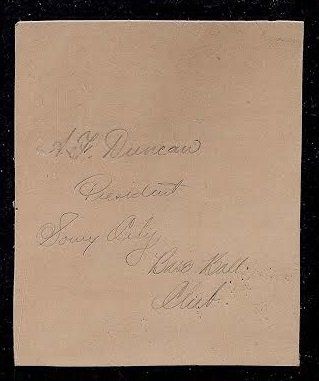 A. F. Duncan
President
Soux City
Base Ball
Club.